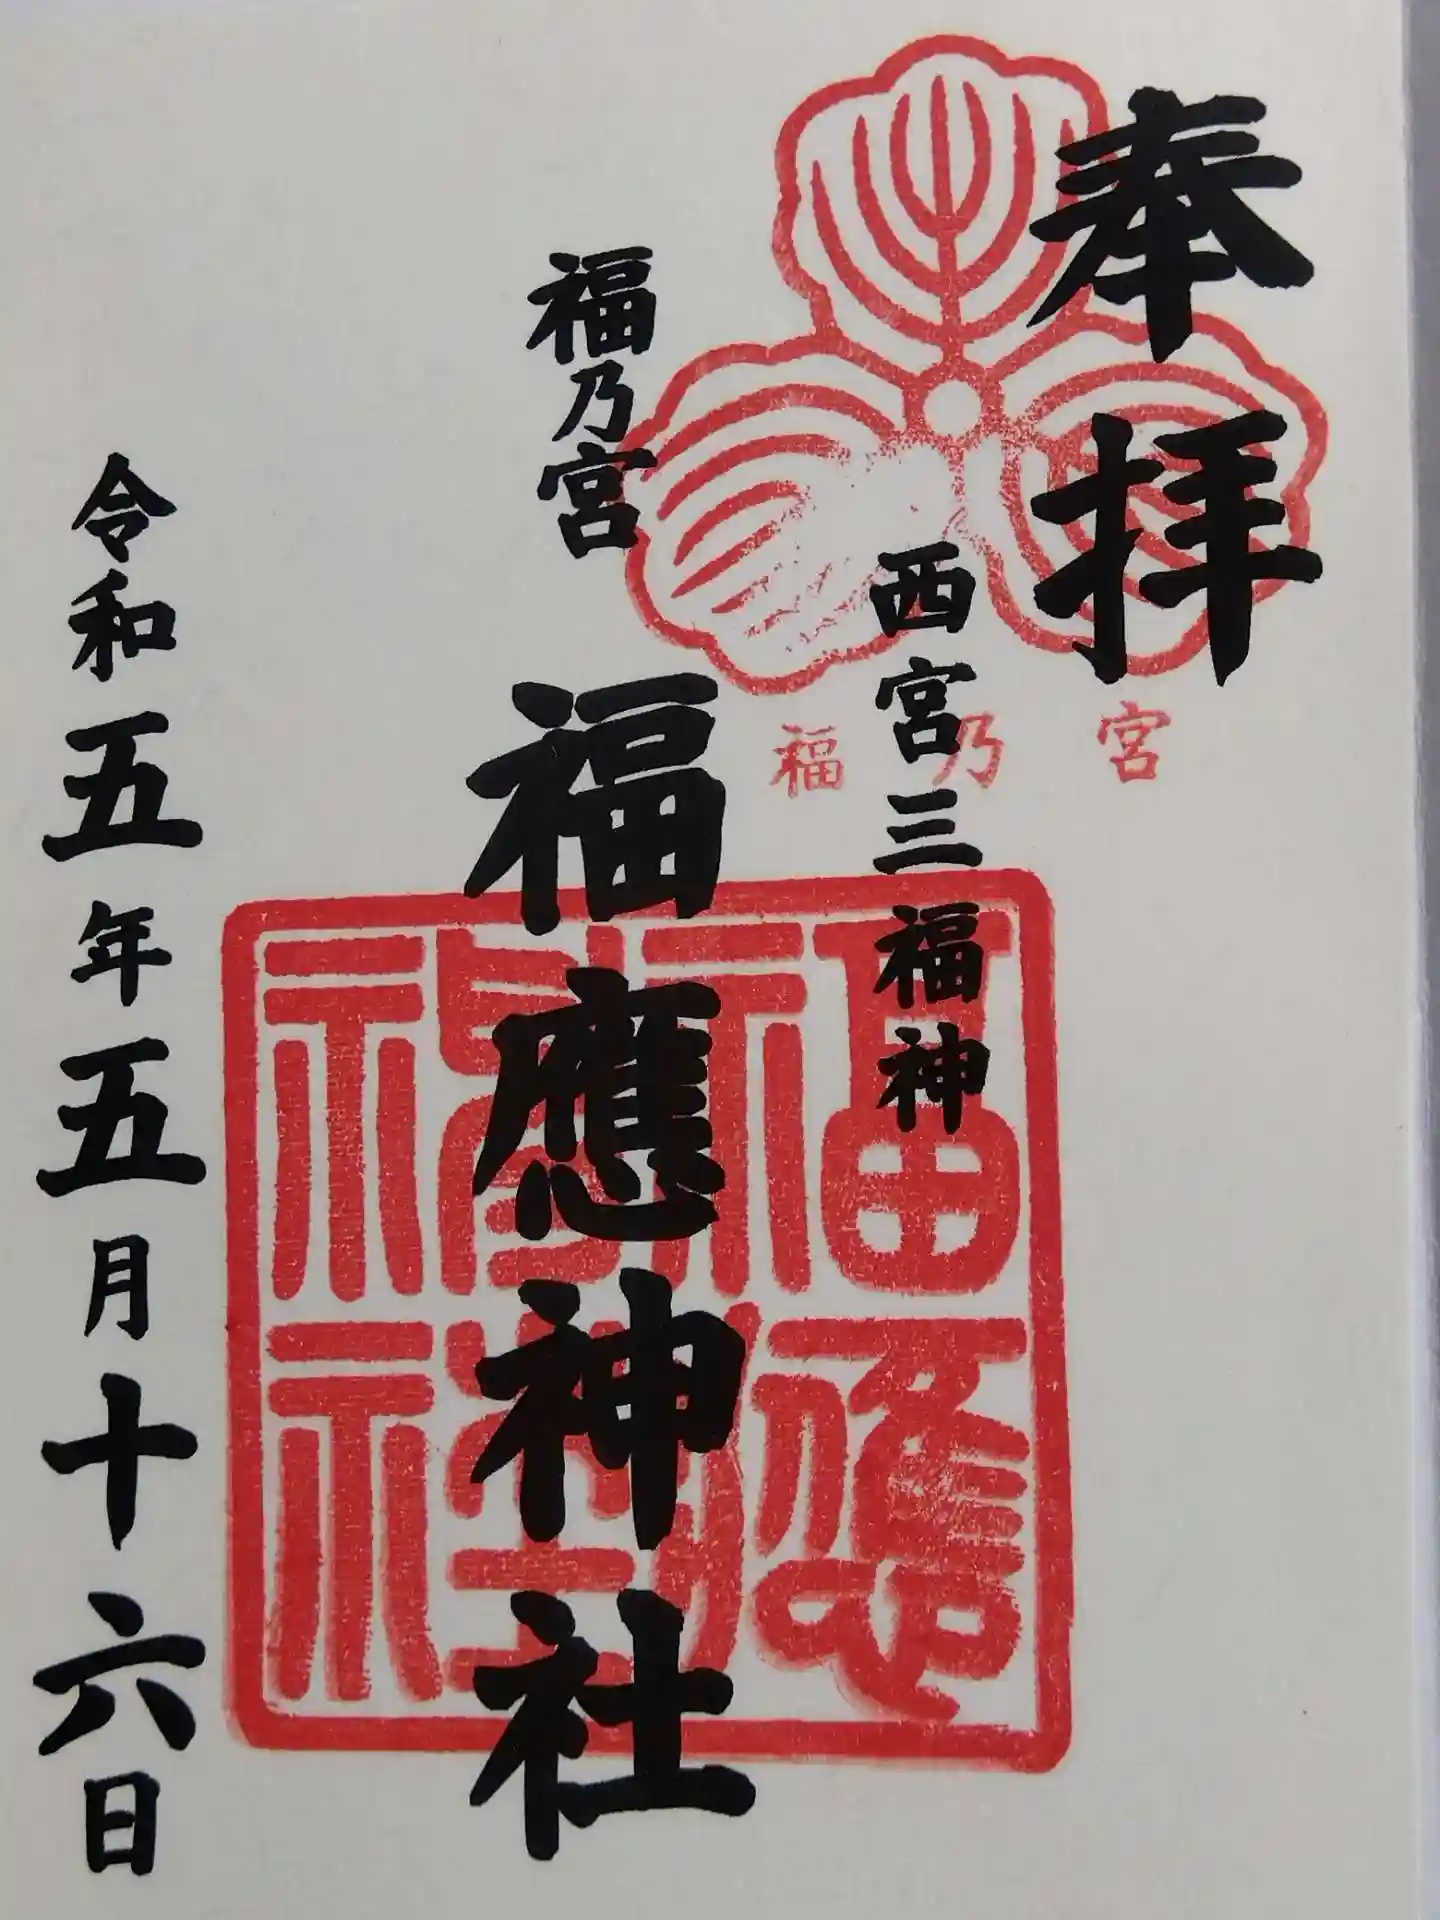 奉拝
西宮三福神
福乃宮
福乃宮
福應神社
福應神社
令和五年五月十六日